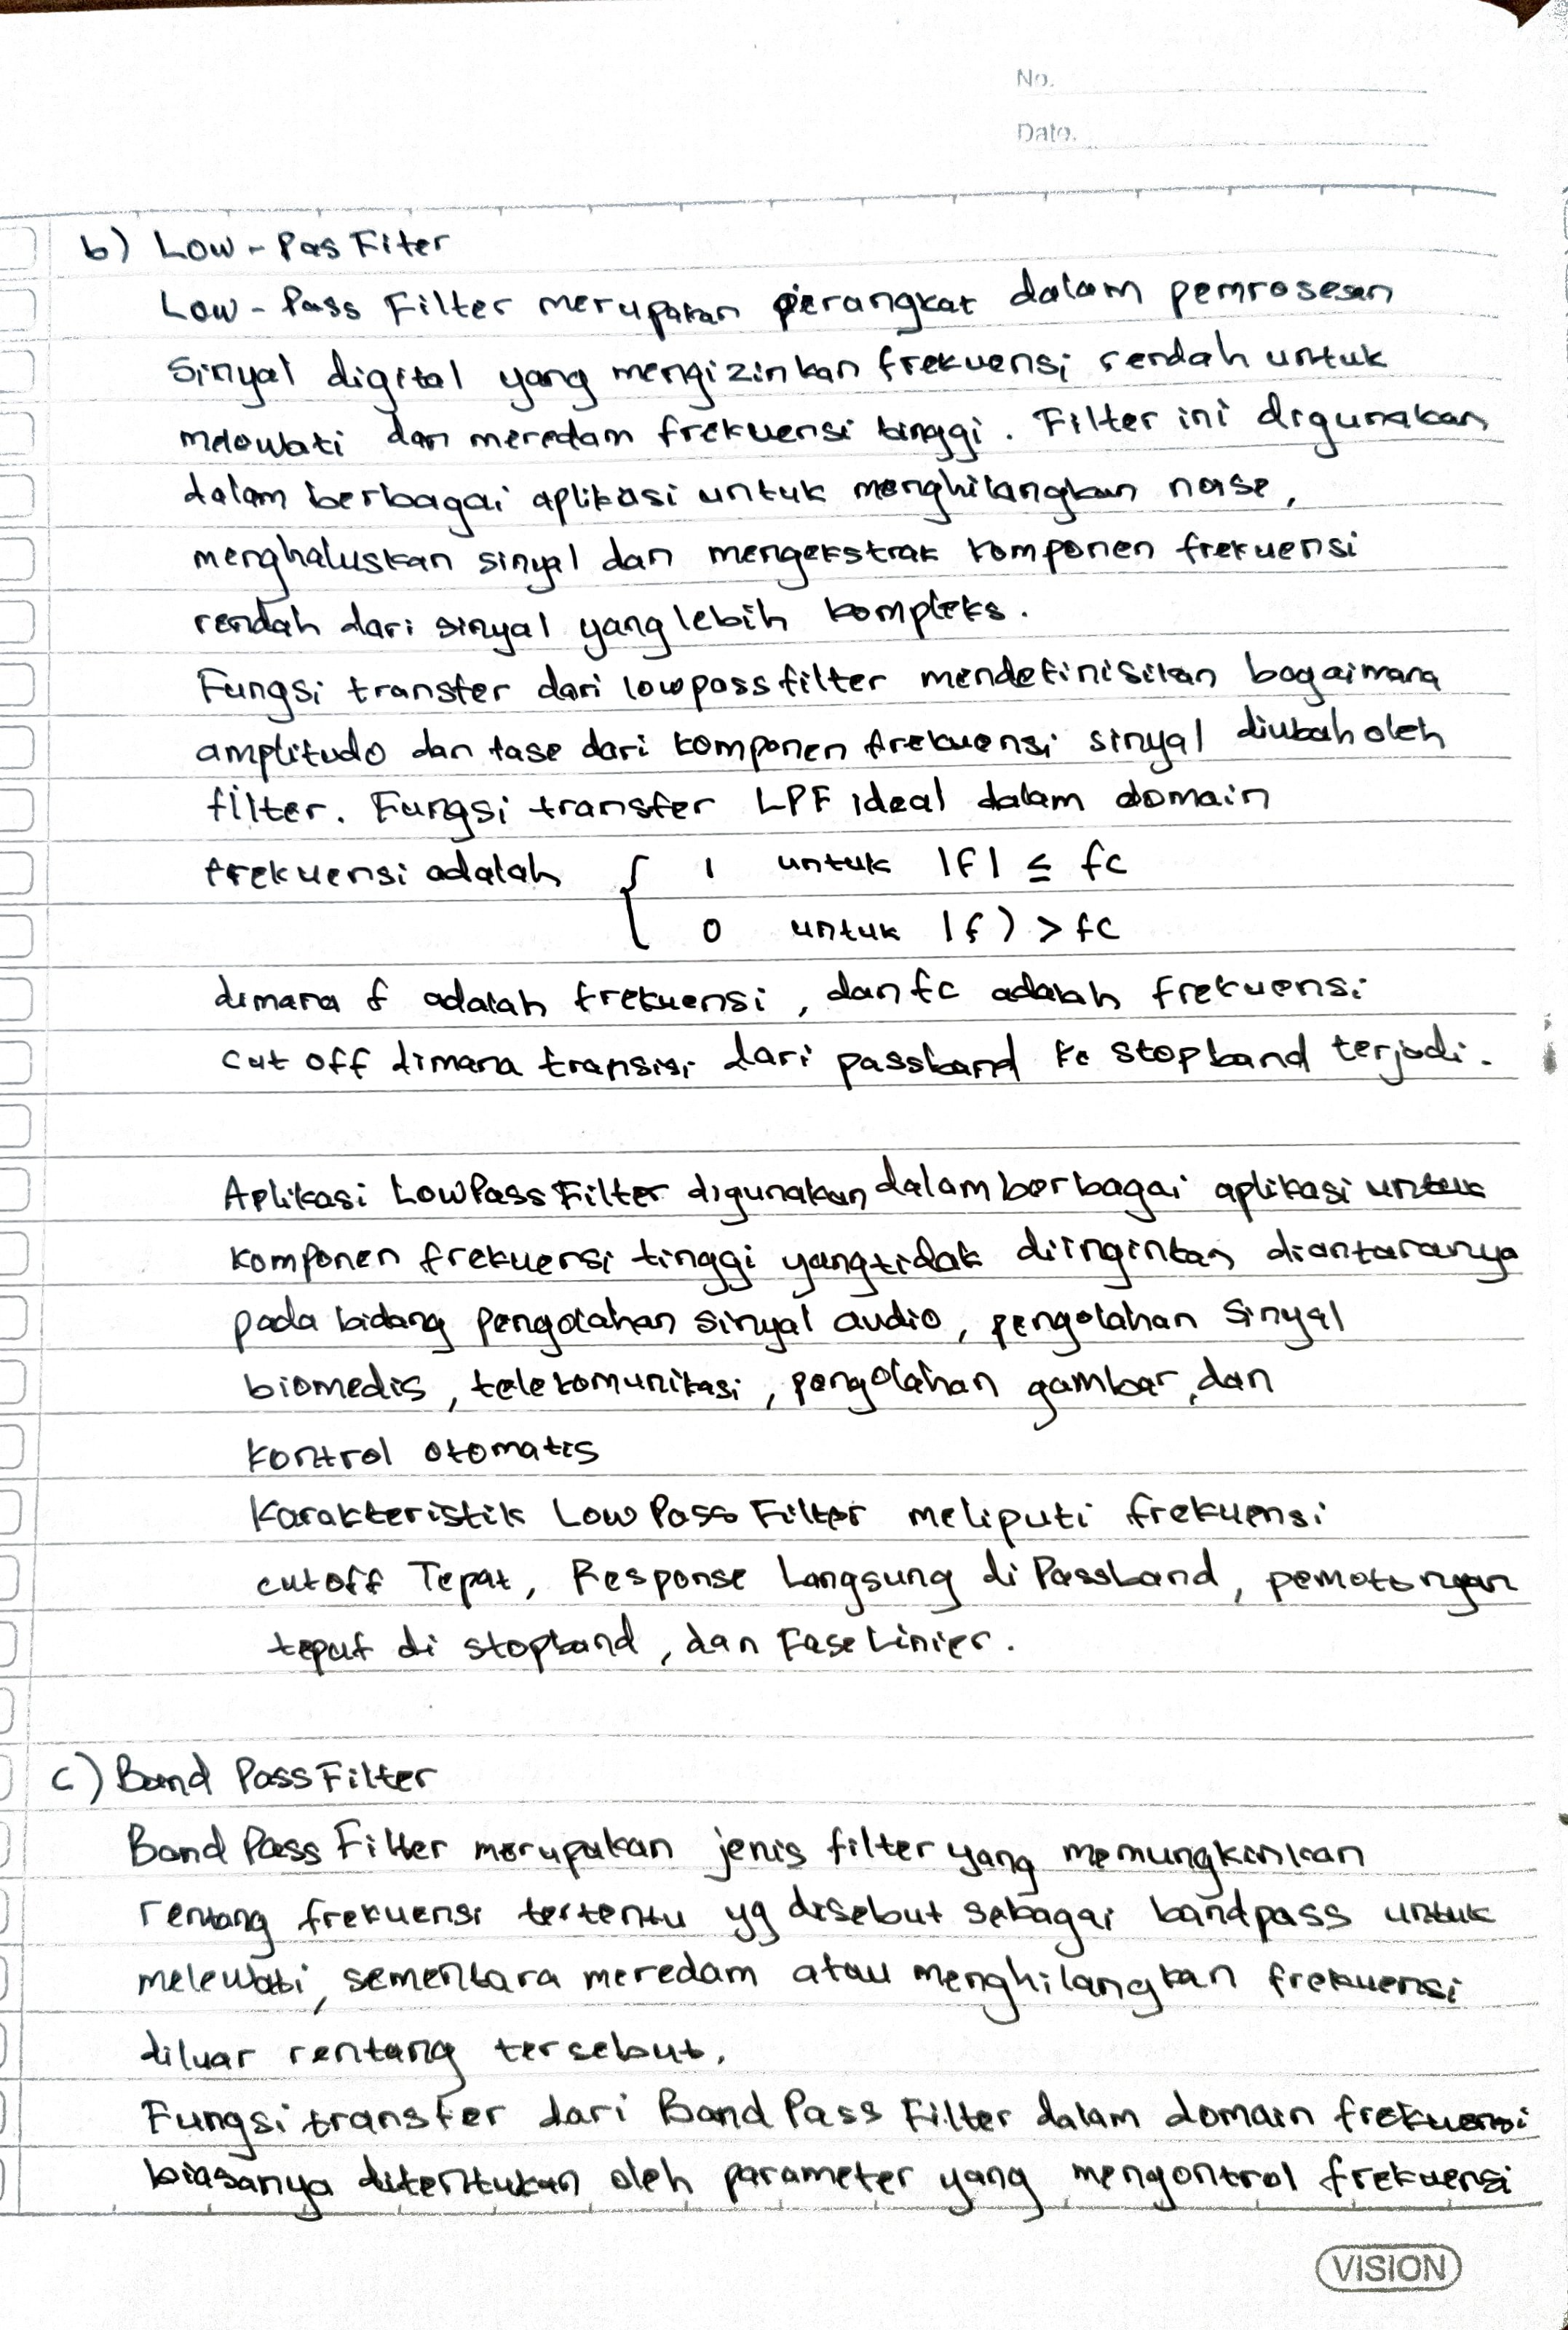 No.
Date.
b) Low - Pas Fiter
Low - Pass Filter merupakan perangkat dalam pemrosesan
Sinyal digital yang mengizinkan frekuensi rendah untuk
melewati dan meredam frekuensi tinggi. Filter ini digunakan
dalam berbagai aplikasi untuk menghilangkan noise,
menghaluskan sinyal dan mengekstrak komponen frekuensi
rendah dari sinyal yang lebih kompleks.
Fungsi transfer dari lowpass filter mendefinisikan bagaimana
amplitudo dan fase dari komponen frekuensi sinyal diubah oleh
filter. Fungsi transfer LPF ideal dalam domain
frekuensi adalah { 1 untuk |f| ≤ fc
0 untuk |f) > fc
dimana f adalah frekuensi, dan fc adalah frekuensi
cut off dimana transisi dari passband ke stopband terjadi.
Aplikasi LowPass Filter digunakan dalam berbagai aplikasi untuk
komponen frekuensi tinggi yang tidak diinginkan diantaranya
pada bidang pengolahan sinyal audio, pengolahan Sinyal
biomedis, telekomunikasi, pengolahan gambar, dan
kontrol otomatis
Karakteristik Low Pass Filter meliputi frekuensi
cutoff Tepat, Response Langsung di Passband, pemotongan
tepat di stopband, dan Fase Linier.
c) Band Pass Filter
Band Pass Filter merupakan jenis filter yang memungkinkan
rentang frekuensi tertentu yg disebut sebagai bandpass untuk
melewati, sementara meredam atau menghilangkan frekuensi
diluar rentang tersebut.
Fungsi transfer dari Band Pass Filter dalam domain frekuensi
biasanya ditentukan oleh parameter yang mengontrol frekuensi
VISION